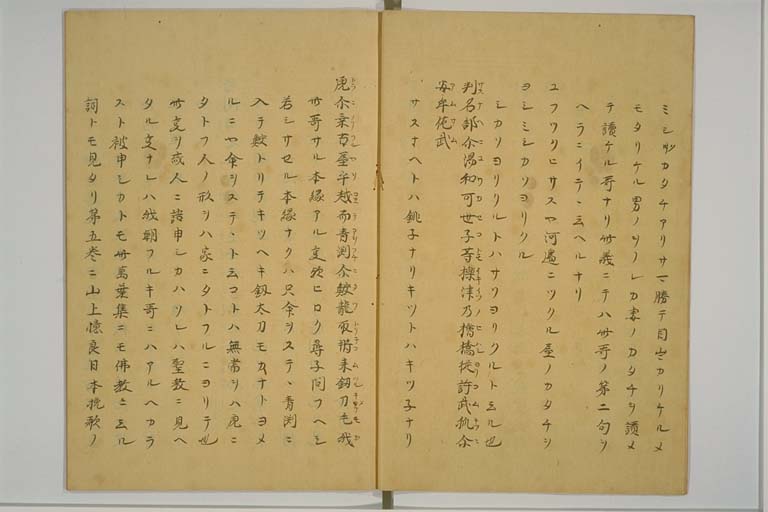 ミシ妙カタチアリサマ勝テ目出カリケルメ
モタリケル男ノソノレカ妻ノカタチヲ讃メ
テ讀ケル哥ナリ此義ニテハ此哥ノ第二句ヲ
ヘラニイテヽ云ヘルナリ
ユフツクヒサスヤ河邊ニツクル屋ノカタチヲ
ヨシミシカソヨリクル
シカソヨリクルトハサソヨリクルト云ル也
刺名鍋尓湯和可世子等櫟津乃檜橋従許武狐尓
安牟佐武
サスナヘトハ銚子ナリキツトハキツ子ナリ
虎尓乗古屋乎越而青渕尓鮫龍取将来釼刀毛我
此哥サル本縁アル文歟ヒロク尋子問フヘシ
若シサセル本縁ナクハ只命ヲステヽ青渕ニ
入テ鮫トリテキツヘキ釼太刀モカナトヨメ
ルニや命ヲステヽト云コトハ無常ヲハ虎ニ
タトフ人ノ形ヲハ家ニタトフルニヨリテ也
此文ヲ或人ニ諸申シカハソレハ聖教ニ見ヘ
タル文ナレハ我朝フルキ哥ニハアルヘカラ
スト被申シカトモ此萬葉集ニモ佛教ニ云ル
詞トモ見タリ第五巻ニ山上憶良日本挽歌ノ